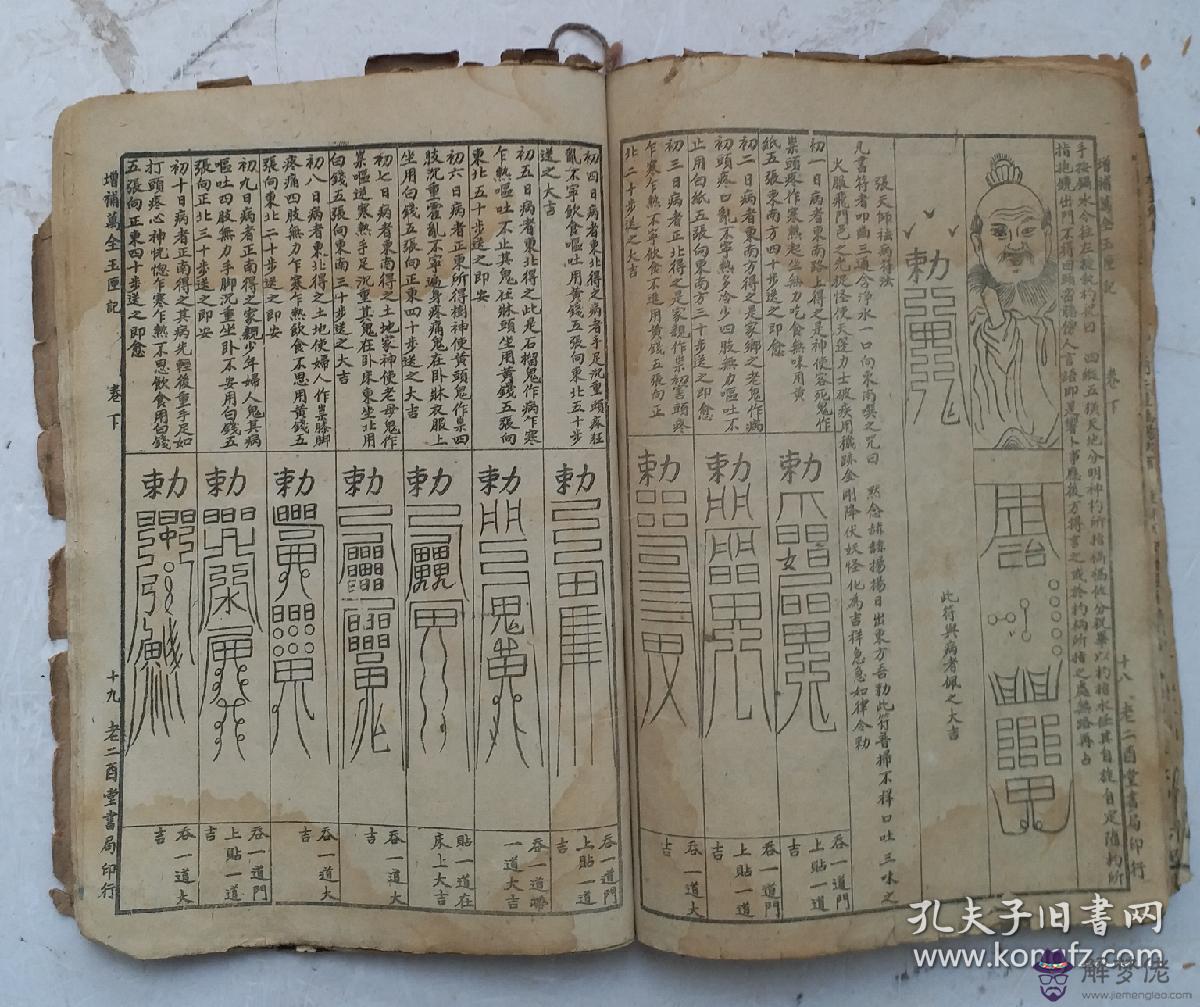 增補萬全玉匣記
卷下
十八
老二酉堂書局印行
手按鍋水令柱左旋執杓咒曰
四縱五橫天地分明神杓所指禍福攸分祝畢以杓指水任其自旋自定隨杓所
指抱鏡出門不得回頭密聽傍人言語即是響卜事應後方得言之或於杓柄所指之處無路再占
勅
此符與病者佩之大吉
張天師祛病符法
凡書符者叩齒三通含淨水一口向東南噀之咒曰
默念赫赫揚揚日出東方吾勅此符普掃不祥口吐三昧之
火服飛門邑之光捉怪使天蓬力士破疾用穢跡金剛降伏妖怪化為吉祥急急如律令勅
初一日病者東南路上得之是神使客死鬼作
祟頭疼乍寒熱起坐無力吃食無味用黃
紙五張東南方四十步送之即愈
勅
吞一道門
上貼一道
大吉
初二日病者東南方得之是家鄉之老鬼作病
初頭疼口亂不寧熱多冷少四肢無力嘔吐不
止用白紙五張向東南方三十步送之即愈
勅
吞一道門
上貼一道
大吉
初三日病者正北得之是家親作祟初害頭疼
乍寒乍熱不寧飲食不進用黃錢五張向正
北二十步送之大吉
勅
吞一道大
吉
初四日病者東北得之病者手足沉重頭疼狂
亂不寧飲食嘔吐用黃錢五張向東北五十步
送之大吉
勅
吞一道門
上貼一道
大吉
初五日病者東北得之此是石榴鬼作病乍寒
乍熱嘔吐不止其鬼在牀頭坐用黃錢五張向
東北五十步送之即安
勅
吞一道
一道大吉
初六日病者正東所得樹神使黃頭鬼作祟四
肢沉重霍亂不寧遍身疼痛鬼在卧牀衣服上
坐用白錢五張向正東四十步送之大吉
勅
貼一道在
床上大吉
初七日病者東北得之土地家神使老母鬼作
祟嘔逆寒熱手足沉重其鬼在卧床東坐北用
白錢五張向東南三十步送之大吉
勅
吞一道大
吉
初八日病者東北得之土地使婦人作祟膝脚
疼痛四肢無力乍寒乍熱飲食不思用黃錢五
張向東北二十步送之即安
勅
吞一道大
吉
初九日病者正南得之家親少年婦人鬼其病
嘔吐四肢無力手脚沉重坐卧不安用白錢五
張向正北三十步送之即安
勅
吞一道門
上貼一道
吉
初十日病者正南得之其病先輕後重手足如
打頭疼心神恍惚乍寒乍熱不思飲食用白錢
五張向正東四十步送之即愈
勅
吞一道大
吉
增補萬全玉匣記
卷下
十九
老二酉堂書局印行
孔夫子旧书网
www.kongfz.com
解梦佬
www.jiemenglao.com